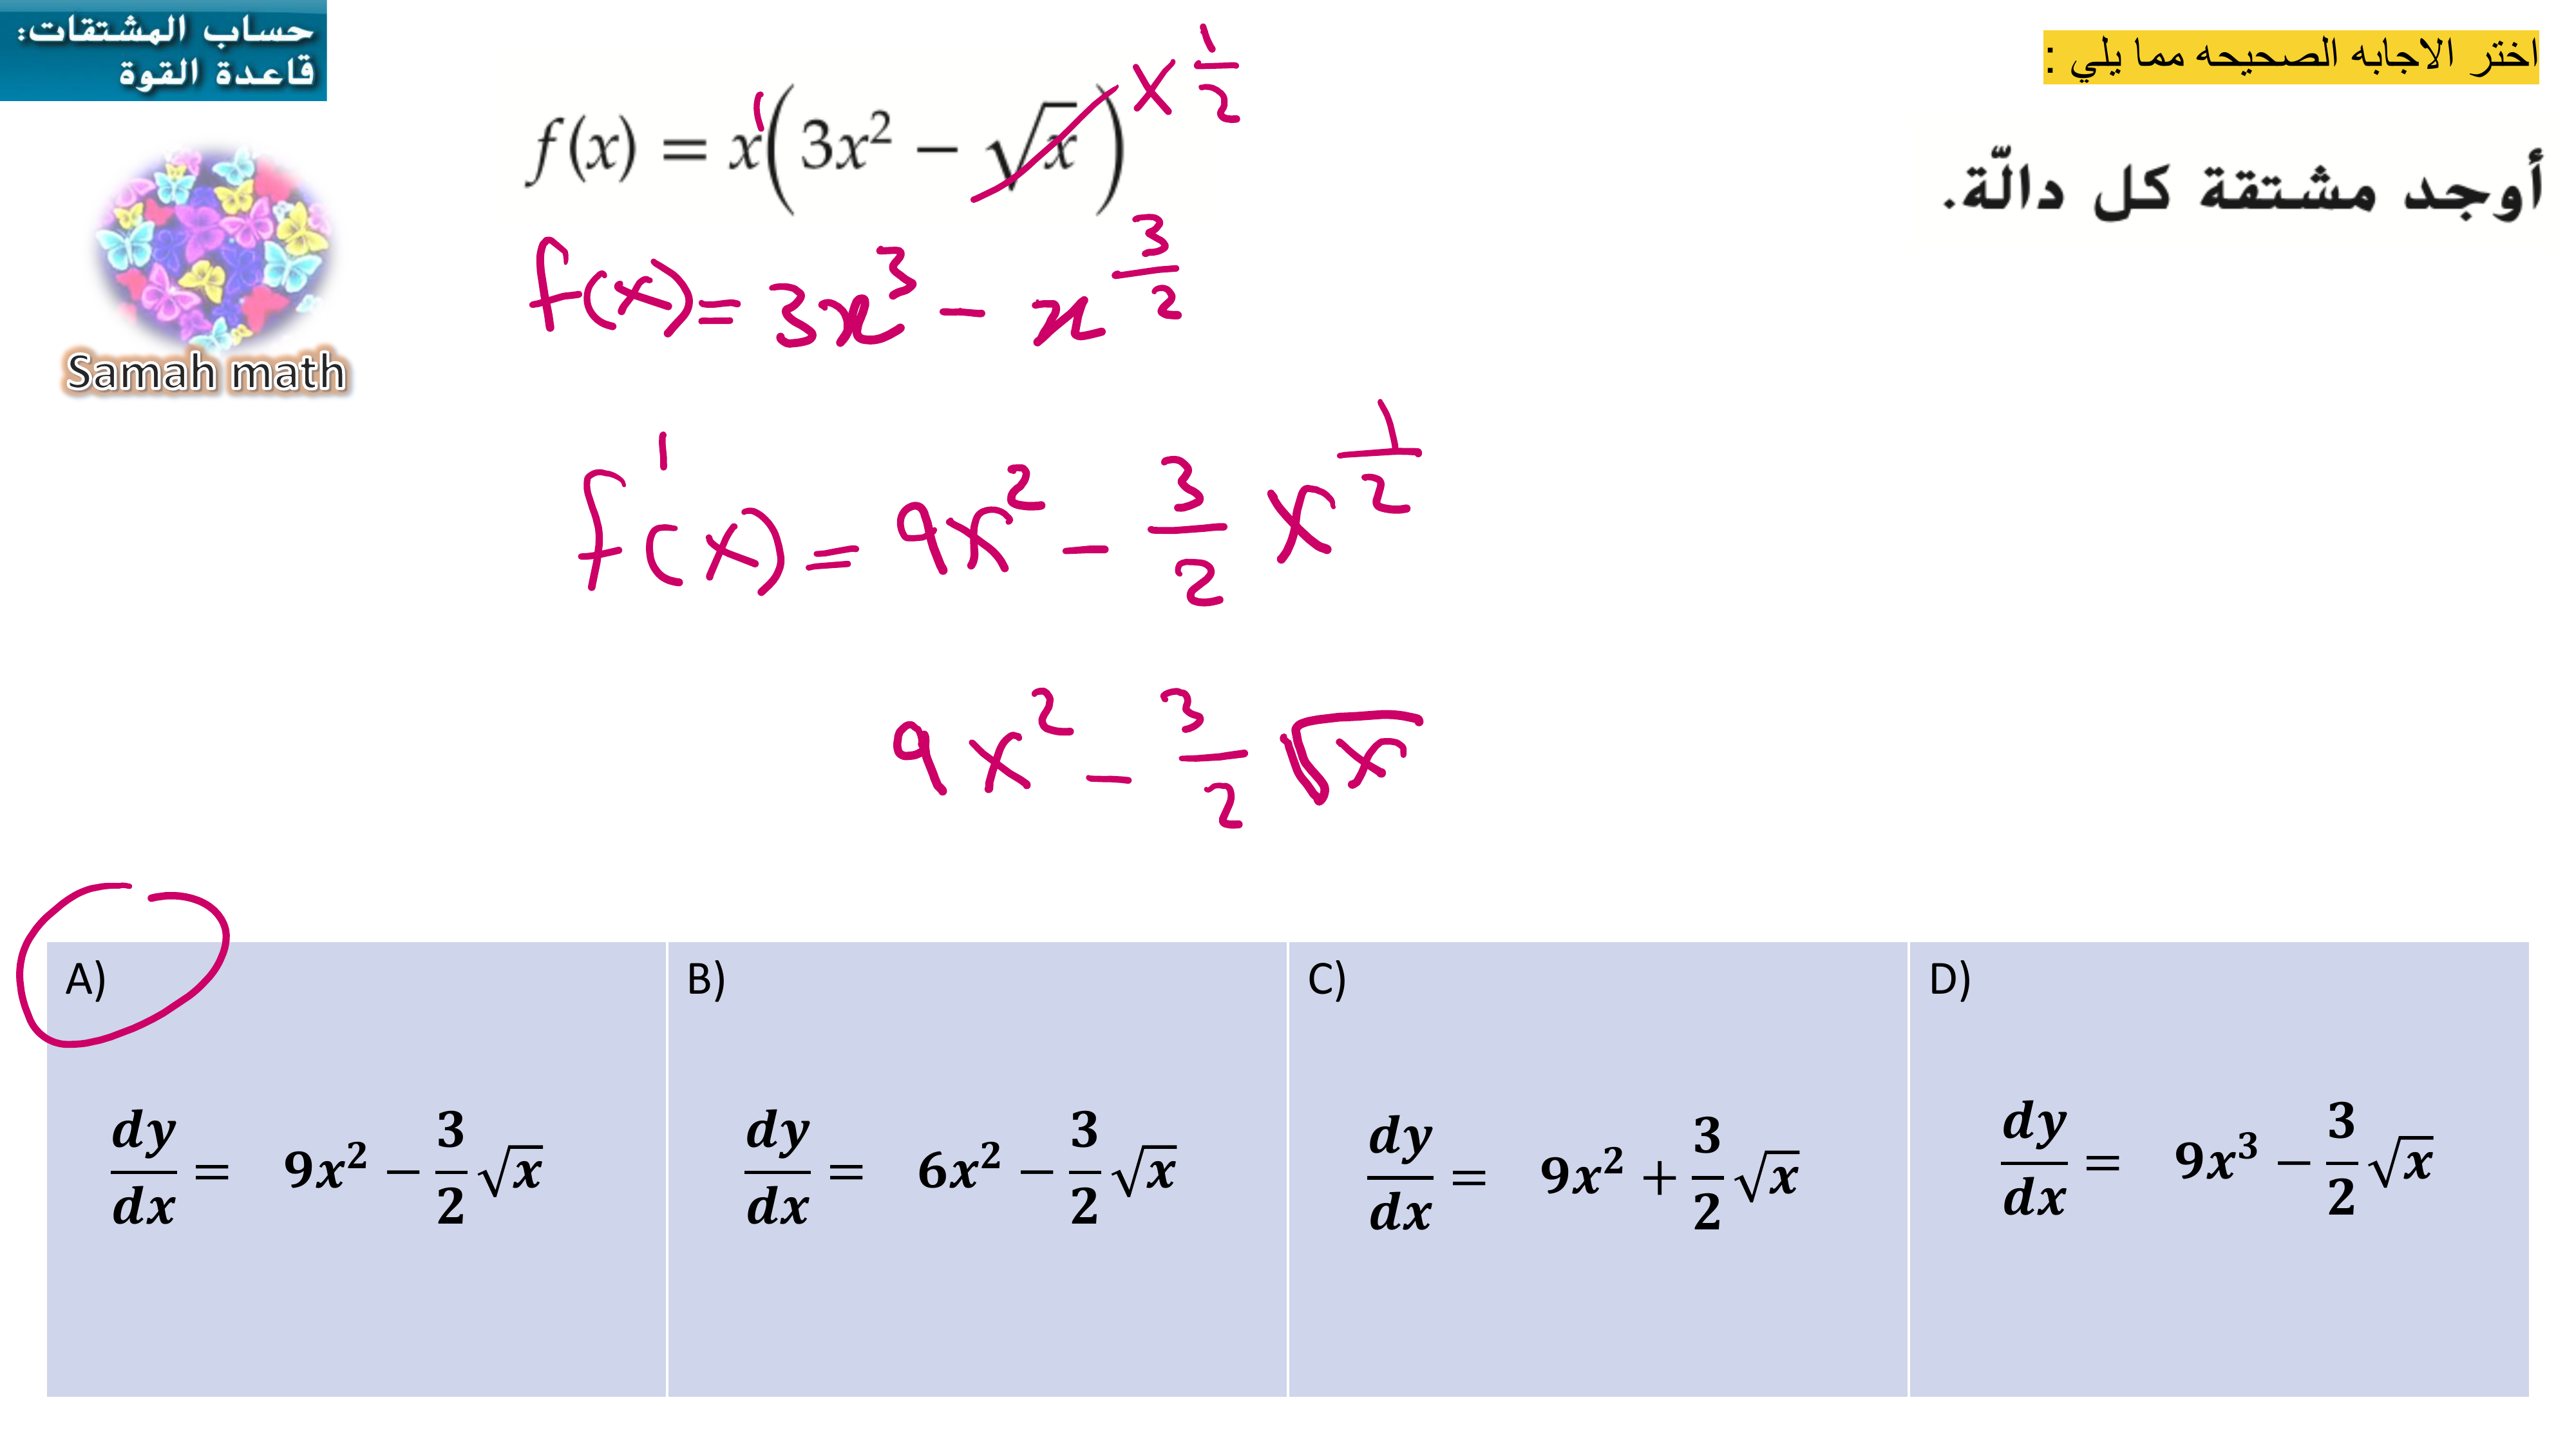 حساب المشتقات:
قاعدة القوة
اختر الاجابه الصحيحه مما يلي :
أوجد مشتقة كل دالّة.
Samah math
f(x) = x¹(3x² − √x) x^(1/2)
f(x) = 3x³ − x^(3/2)
f'(x) = 9x² − 3/2 x^(1/2)
9x² − 3/2 √x
A)
dy/dx = 9x² − 3/2 √x
B)
dy/dx = 6x² − 3/2 √x
C)
dy/dx = 9x² + 3/2 √x
D)
dy/dx = 9x³ − 3/2 √x